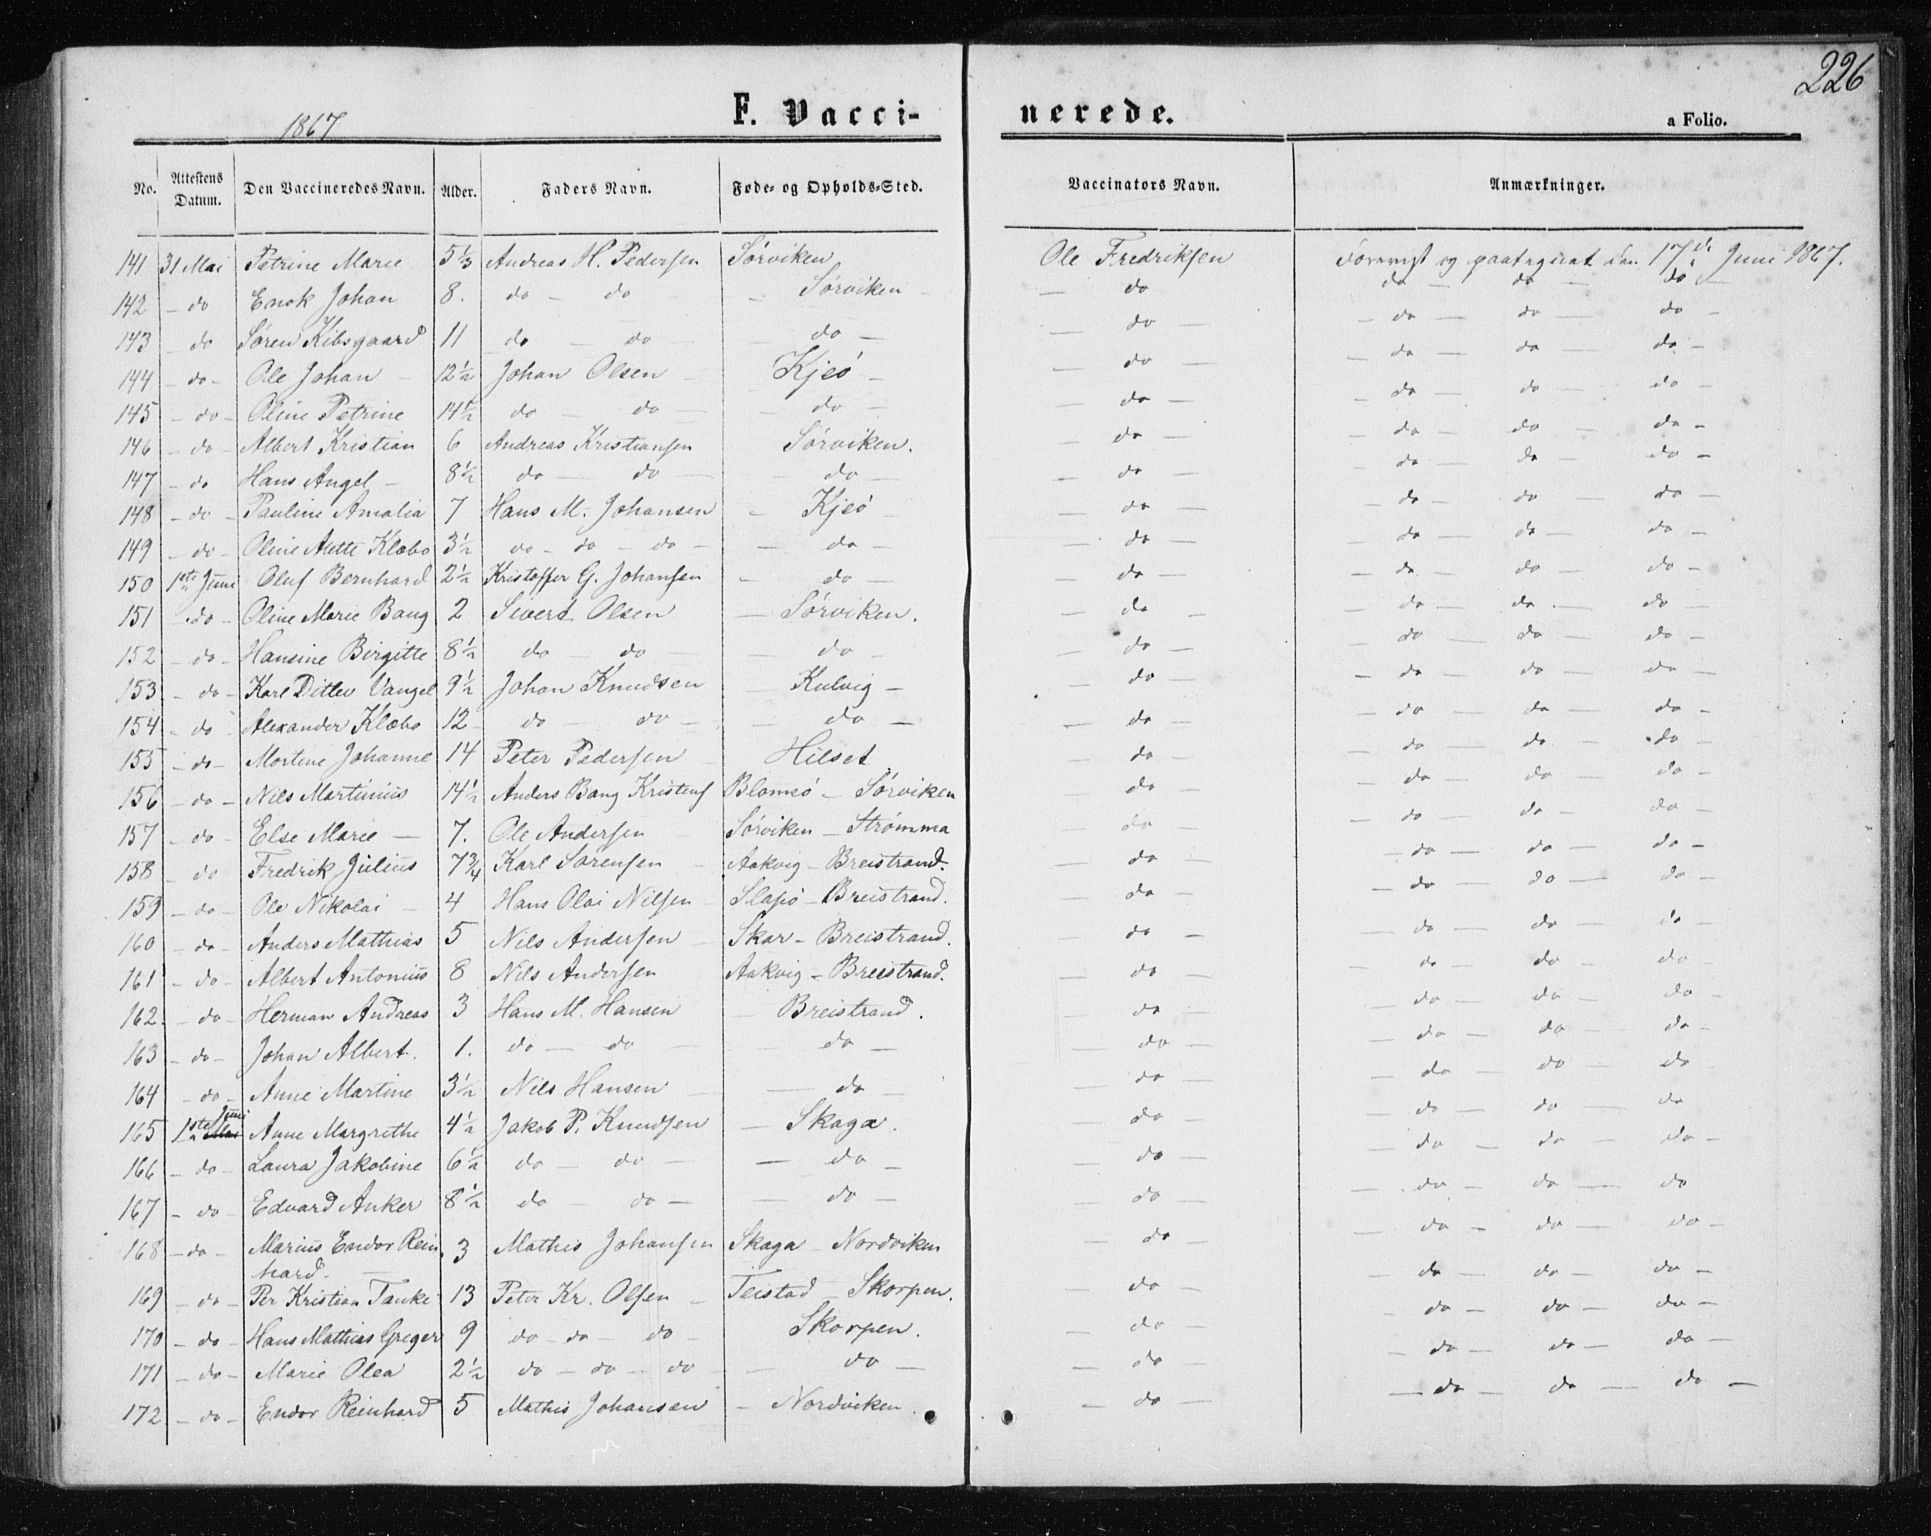 226
1867 F. Vacci- nerede. a Folio.
No. Attestens Datum. Den Vaccineredes Navn. Alder. Faders Navn. Føde- og Opholds-Sted. Vaccinators Navn. Anmærkninger.
141 31 Mai Petrine Marie 5 1/3 Andreas H. Pedersen Sørviken Ole Fredriksen Forevist og paategnet den 17de Juni 1867.
142 - do Enok Johan 8. do - do - Sørviken - - do - do - do - do -
143 - do Søren Kibsgaard 11 do - do - do - - do - - do - do - do -
144 - do - Ole Johan - 12 1/2 Johan Olsen - Kjeö - - do - - do - do - do -
145 - do - Oline Petrine 14 1/2 do - do - - do - - do - - do - do - do -
146 - do - Albert Kristian 6 Andreas Kristiansen Sørviken. - do - - do - do - do -
147 - do Hans Angel - 8 1/2 do - do - do - - do - - do - do - do -
148 - do - Pauline Amalia 7 Hans M. Johansen - Kjeö - - do - - do - do - do -
149 - do - Oline Mette Klæbo 3 1/2 do - do - do - - do - - do - - do - do - do -
150 1ste Juni Oluf Bernhard 2 1/2 Kristoffer G. Johansen - do - - do - - do - do - do -
151 - do - Oline Marie Bang 2 Sivert Olsen - Sørviken. - do - - do - do - do -
152 - do - Hansine Birgitte 8 1/2 do do - do - - do - - do - do - do -
153 - do - Karl Ditlev Vangel 9 1/2 Johan Knudsen Kulvig - - do - - do - do - do -
154 - do Alexander Klæbo 12 - do - do - - do - - do - - do - do - do -
155 - do - Mortine Johanne 14 Peter Pedersen Hilset - do - - do - do - do -
156 - do - Nils Martinius 14 1/2 Anders Bang Kristens Blomsö - Sørviken - do - - do - do - do -
157 - do - Else Marie - 7. Ole Andersen - Sørviken - Strømma - do - - do - do - do -
158 - do Fredrik Julius 7 3/4 Karl Sørensen - Aakvig - Breistrand. - do - - do - do - do -
159 - do - Ole Nikolai - 4 Hans Olai Nilsen - Slapö - Breistrand. - do - - do - do - do -
160 - do - Anders Mathias 5 Nils Andersen - Skar - Breistrand. - do - - do - do - do -
161 - do - Albert Antonius 8 Nils Andersen Aakvig - Breistrand. - do - - do - do - do -
162. - do - Herman Andreas 3 Hans M. Hansen - Breistrand. - do - - do - do - do -
163 - do - Johan Albert. 1. do - do - - do - - do - - do - do - do -
164 - do - Anne Martine 3 1/2 Nils Hansen - - do - - do - - do - do - do
165 1ste Juni Anne Margrethe 4 1/2 Jakob P. Knudsen - Skaga. - do - - do - do - do
166 - do - Laura Jakobine 6 1/2 do - do - - do - - do - - do - do - do -
167 - do Edvard Anker 8 1/2 do - do - - do - - do - - do - do - do
168 - do - Marius Endor Rein 3 Mathis Johansen Skaga - Nordviken - do - - do - do - do -
hard. -
169 - do - Per Kristian Tanke 13 Peter Kr. Olsen - Teistad - Skorpen. - do - - do - do - do -
170 - do - Hans Mathias Greger 9 do - do - do - Skorpen. - do - - do - do - do -
171 - do - Marie Olea 2 1/2 do - do - do - do - - do - - do - do - do -
172 - do - Endor Reinhard 5 Mathis Johansen - Nordviken. - do - - do - do - do -